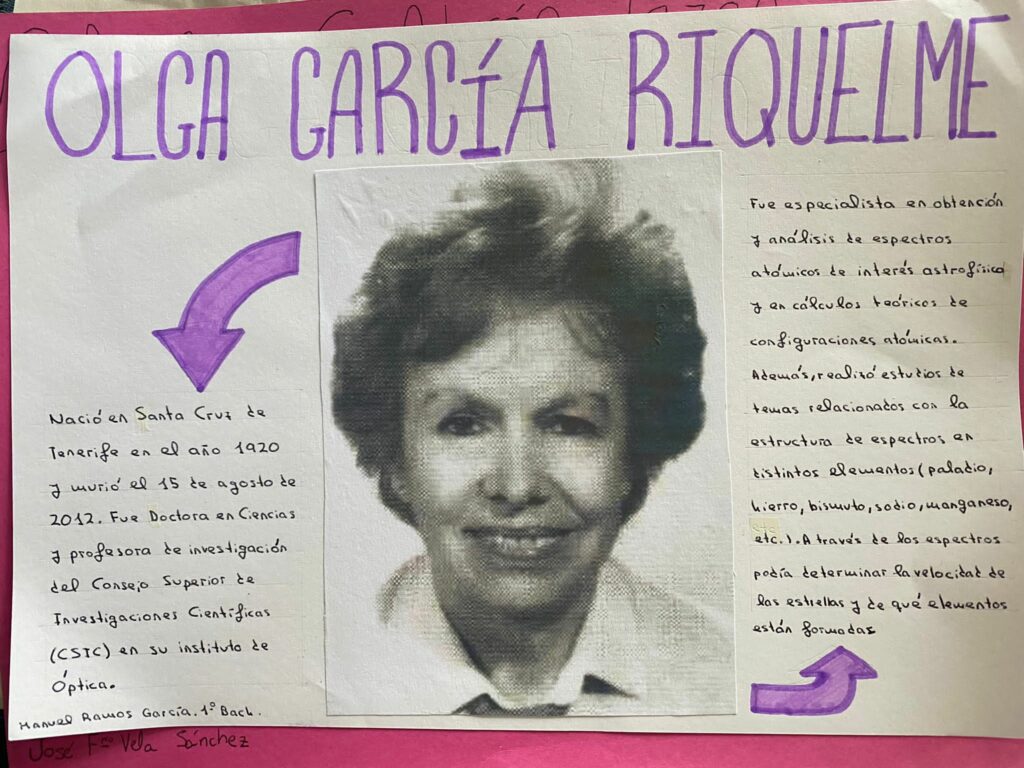 OLGA GARCÍA RIQUELME
Nació en Santa Cruz de
Tenerife en el año 1920
y murió el 15 de agosto de
2012. Fue Doctora en Ciencias
y profesora de investigación
del Consejo Superior de
Investigaciones Científicas
(CSIC) en su instituto de
Óptica.
Manuel Ramos García. 1º Bach.
José Fco Vela Sánchez
Fue especialista en obtención
y análisis de espectros
atómicos de interés astrofísico
y en cálculos teóricos de
configuraciones atómicas.
Además, realizó estudios de
temas relacionados con la
estructura de espectros en
distintos elementos (paladio,
hierro, bismuto, sodio, manganeso,
etc.). A través de los espectros
podía determinar la velocidad de
las estrellas y de qué elementos
están formadas